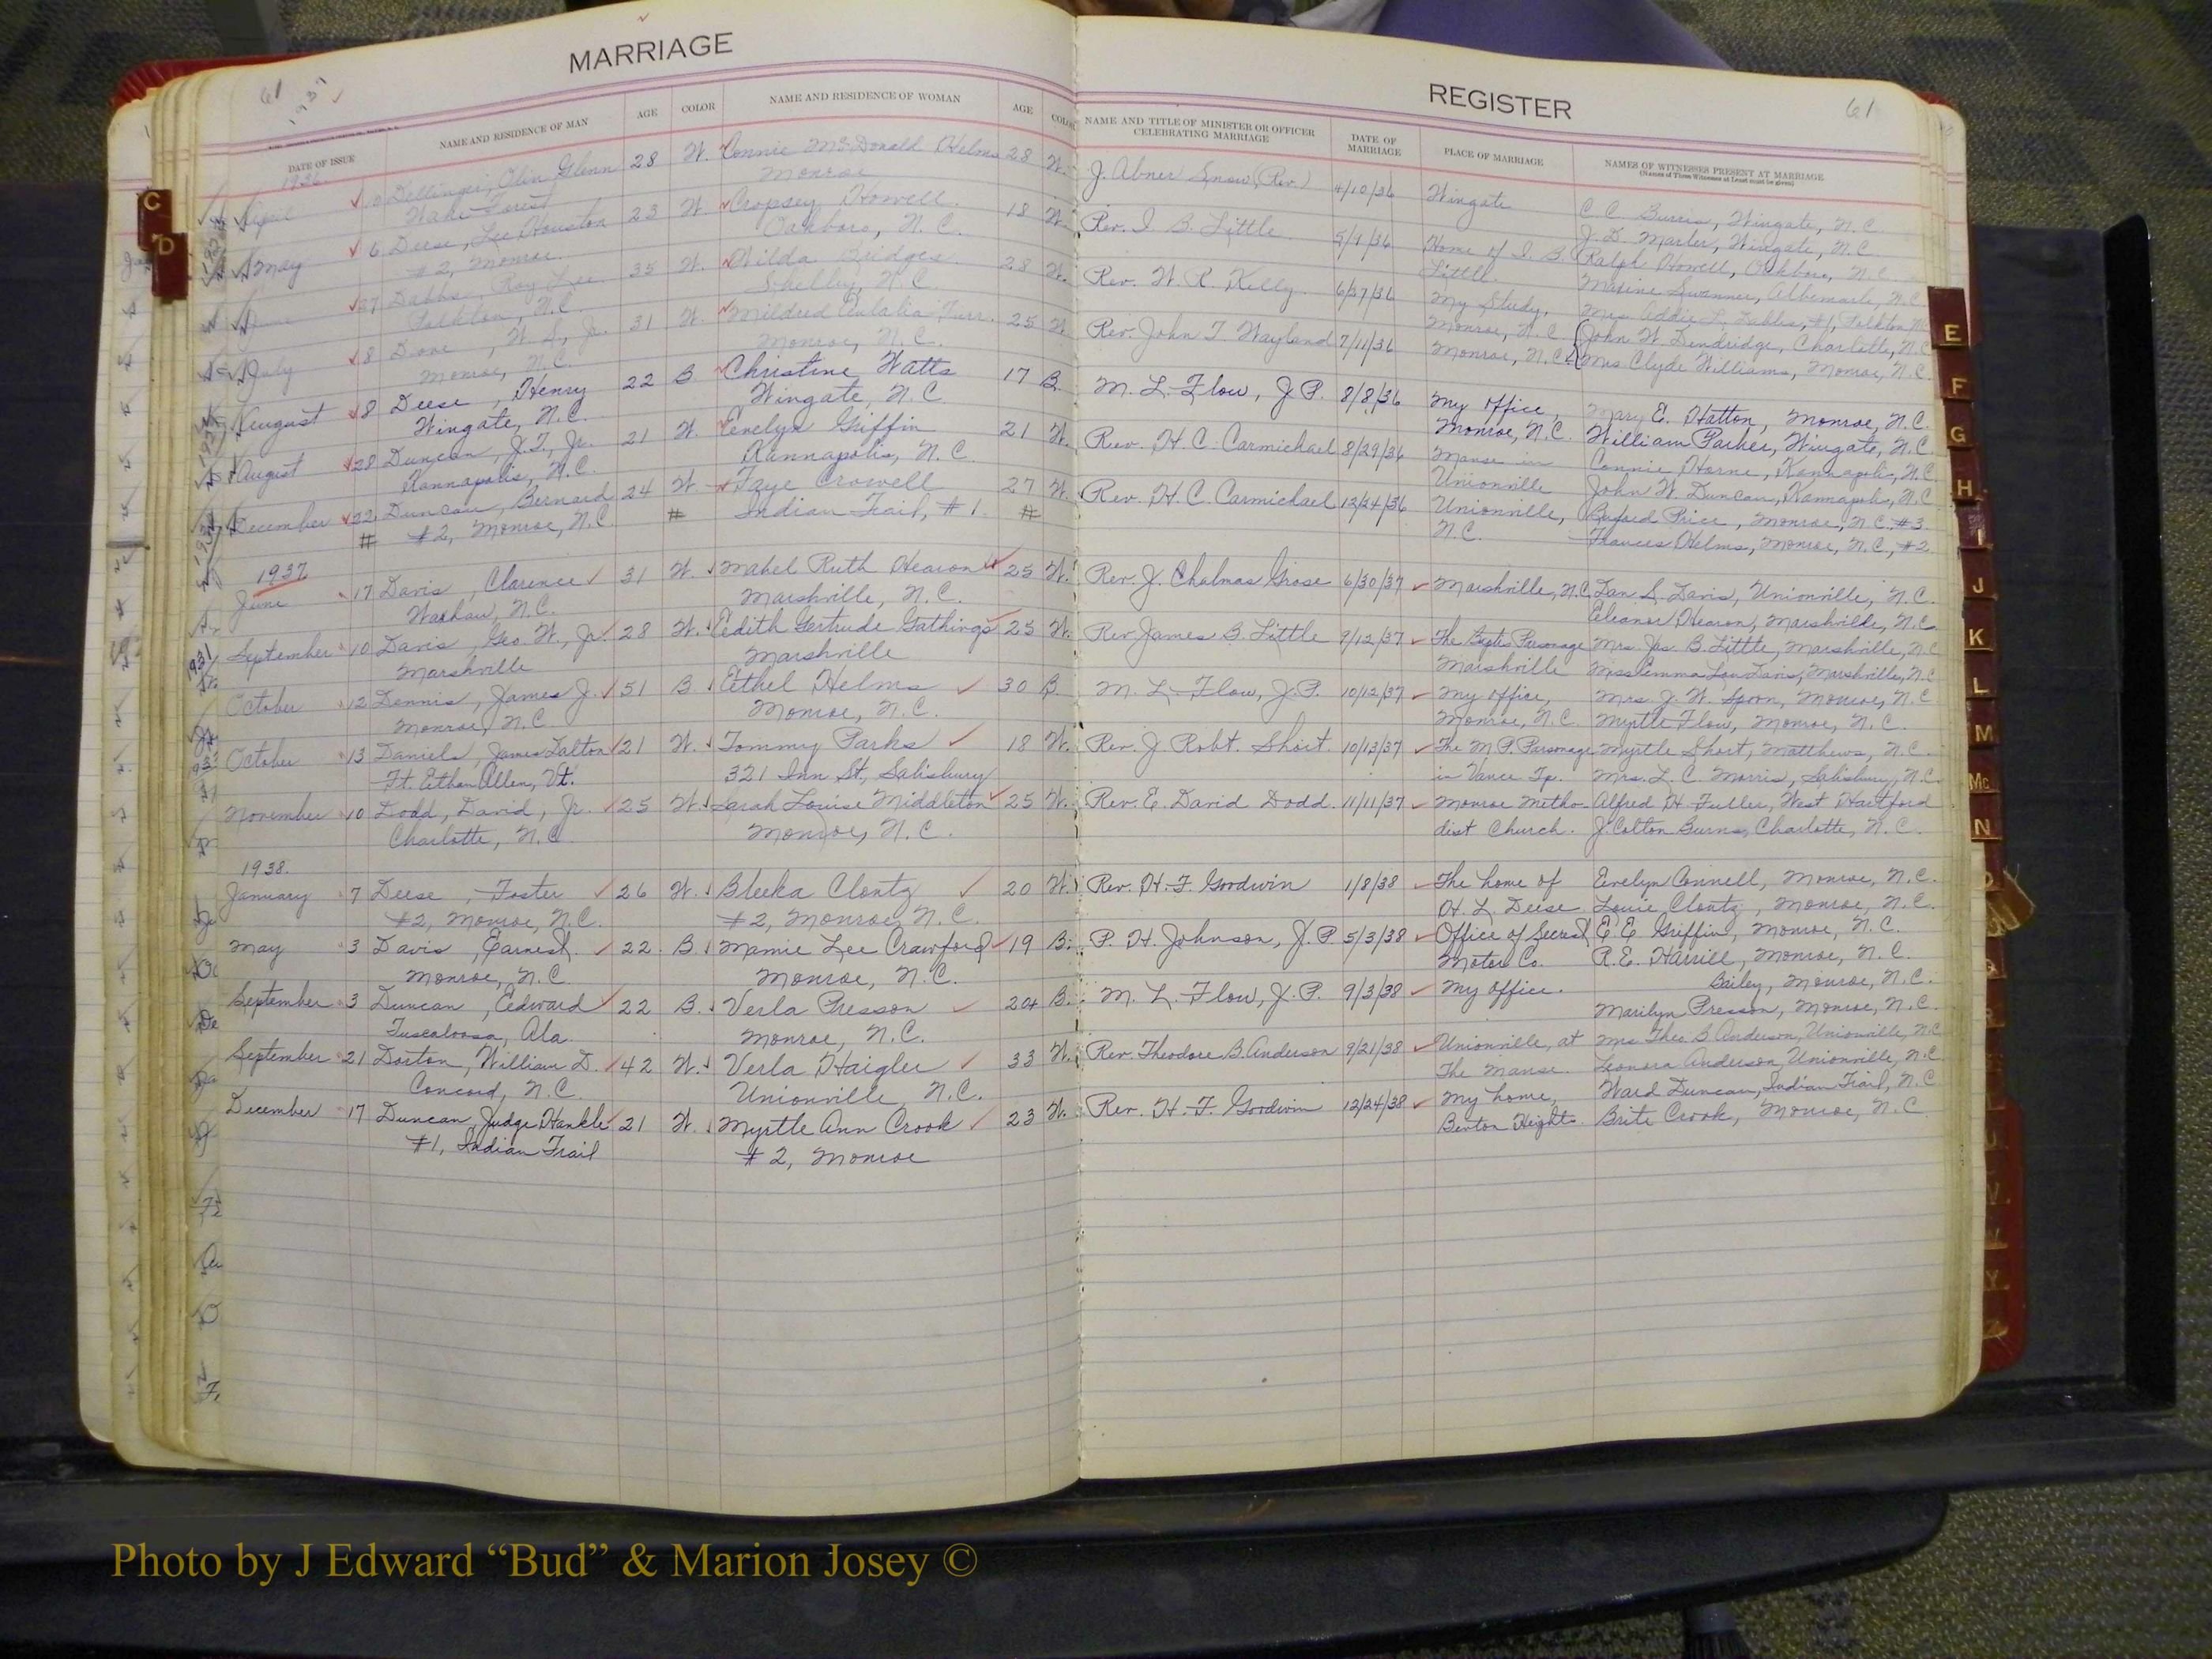 MARRIAGE
61
1937
DATE OF ISSUE
NAME AND RESIDENCE OF MAN
AGE
COLOR
NAME AND RESIDENCE OF WOMAN
AGE
COLOR
1936.
April Dellinger, Olin Glenn 28 W. Connie McDonald Helms 28 W.
Wake Forest Monroe
May 6 Deese, Lee Houston 23 W. Cropsey Howell 18 W.
#2, Monroe Oakboro, N.C.
June 27 Dabbs, Roy Lee 35 W. Wilda Bridges 28 W.
Polkton, N.C. Shelby, N.C.
July 8 W. S., Jr. 31 W. Mildred Eulalia 25 W.
Monroe, N.C. Monroe, N.C.
August 8 Deese, Henry 22 B Christine Watts 17 B
Wingate, N.C. Wingate, N.C.
August 28 Duncan, J.T., Jr. 21 W. Evelyn Griffin 21 W.
Kannapolis, N.C. Kannapolis, N.C.
December 22 Duncan, Bernard 24 W Faye Crowell 27 W.
# #2, Monroe, N.C. # Indian Trail, #1. #
1937
June 17 Davis, Clarence 31 W. Mabel Ruth Hearon 25 W.
Waxhaw, N.C. Marshville, N.C.
September 10 Davis, Geo. W., Jr. 28 W. Edith Gertrude Gathings 25 W.
Marshville Marshville
October 12 Dennis, James J. 51 B Ethel Helms 30 B
Monroe, N.C. Monroe, N.C.
October 13 Daniels, James Dalton 21 W. Tommy Parks 18 W.
Ft. Ethan Allen, Vt. 321 Inn St, Salisbury
November 10 Dodd, David, Jr. 25 W. Sarah Louise Middleton 25 W.
Charlotte, N.C. Monroe, N.C.
1938.
January 7 Deese, Foster 26 W. Bleeka Clontz 20 W.
#2, Monroe, N.C. #2, Monroe, N.C.
May 3 Davis, Earnest 22 B. Mamie Lee Crawford 19 B.
Monroe, N.C. Monroe, N.C.
September 3 Duncan, Edward 22 B. Verla Presson 24 B.
Tuscaloosa, Ala. Monroe, N.C.
September 21 Doston, William D. 42 W. Verla Haigler 33 W.
Concord, N.C. Unionville, N.C.
December 17 Duncan, Judge Hankle 21 W. Myrtle Ann Crook 23 W.
#1, Indian Trail #2, Monroe
REGISTER
61
NAME AND TITLE OF MINISTER OR OFFICER
CELEBRATING MARRIAGE
DATE OF
MARRIAGE
PLACE OF MARRIAGE
NAMES OF WITNESSES PRESENT AT MARRIAGE
(Names of Three Witnesses at Least must be given)
J. Abner Snow (Rev.) 4/10/36 Wingate C.C. Burris, Wingate, N.C.
J. D. Marler, Wingate, N.C.
Rev. I. B. Little 5/9/36 Home of I. B. Ralph Howell, Oakboro, N.C.
Little. Maxine Swanner, Albemarle, N.C.
Rev. W. R. Kelly 6/27/36 My Study, Mrs. Addie L. Dabbs, #1, Polkton N.C.
Monroe, N.C. John W. Dendridge, Charlotte, N.C.
Rev. John T. Wayland 7/11/36 Monroe, N.C. Mrs Clyde Williams, Monroe, N.C.
M. L. Flow, J.P. 8/8/36 My Office, Mary E. Hatton, Monroe, N.C.
Monroe, N.C. William Parker, Wingate, N.C.
Rev. H. C. Carmichael 8/29/36 Manse in Connie Horne, Kannapolis, N.C.
Unionville John W. Duncan, Kannapolis, N.C.
Rev. H. C. Carmichael 12/24/36 Unionville, Buford Price, Monroe, N.C. #3
N.C. Frances Helms, Monroe, N.C., #2
Rev. J. Chalmas Grose 6/30/37 Marshville, N.C. Dan S. Davis, Unionville, N.C.
Eleanor Hearon, Marshville, N.C.
Rev James B. Little 9/12/37 The Baptist Parsonage Mrs. Jas. B. Little, Marshville, N.C.
Marshville Miss Emma Lou Davis, Marshville, N.C.
M. L. Flow, J.P. 10/12/37 My office, Mrs. J. W. Spoon, Monroe, N.C.
Monroe, N.C. Myrtle Flow, Monroe, N.C.
Rev. J. Robt. Short 10/13/37 The M.P. Parsonage Myrtle Short, Matthews, N.C.
in Vance Tp. Mrs. L. C. Morris, Salisbury, N.C.
Rev. E. David Dodd 11/11/37 Monroe Metho- Alfred H. Fuller, West Hartford
dist Church. J. Colton Burns, Charlotte, N.C.
Rev. H. F. Goodwin 1/8/38 The home of Evelyn Connell, Monroe, N.C.
H. L. Deese Louie Clontz, Monroe, N.C.
P. H. Johnson, J.P. 5/3/38 Office of Secrest E. E. Griffin, Monroe, N.C.
Motor Co. R. E. Harrill, Monroe, N.C.
M. L. Flow, J.P. 9/3/38 My office. Bailey, Monroe, N.C.
Marilyn Presson, Monroe, N.C.
Rev. Theodore B. Anderson 9/21/38 Unionville, at Mrs. Theo B. Anderson, Unionville, N.C.
The Manse. Leonora Anderson, Unionville, N.C.
Rev. H. F. Goodwin 12/24/38 My home, Ward Duncan, Indian Trail, N.C.
Benton Heights. Brite Crook, Monroe, N.C.
C
D
E
F
G
H
I
J
K
L
M
Mc
N
Photo by J Edward “Bud” & Marion Josey ©